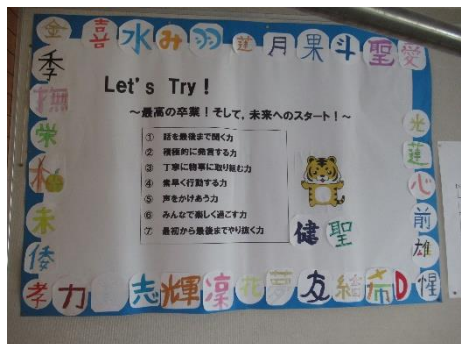 金 喜 水 み 羽 蓮 月 果 斗 聖 愛
季
撫
栄
未
倭
Let's Try!
~最高の卒業!そして、未来へのスタート!~
① 話を最後まで聞く力
② 積極的に発言する力
③ 丁寧に物事に取り組む力
④ 素早く行動する力
⑤ 声をかけあう力
⑥ みんなで楽しく過ごす力
⑦ 最初から最後までやり抜く力
健 聖
光
蓮
心
前
雄
惺
孝 力 志 輝 凜 花 夢 友 結 希 D